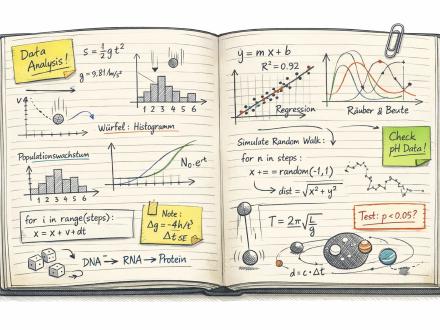 Data
Analysis!
s = ½gt²
g = 9.81 m/s²
v
1 2 3 4 5 6
Würfel: Histogramm
Populationswachstum
1 2 3 4 5 6
N₀·eʳᵗ
for i in range(steps):
x = x + v + dt
Note:
Δg = -4h/t²
DNA → RNA → Protein
y = mx + b
R² = 0.92
Regression
Räuber & Beute
Simulate Random Walk:
for n in steps:
x += random(-1,1)
→ dist = √x² + y²
Check
pH Data!
T = 2π√L/g
Test: p < 0.05?
d = c · Δt